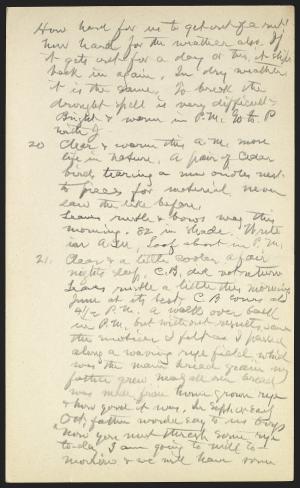 How hard for us to get out of a rut!
how hard for the weather also. If
it gets out for a day or two, it slips
back in again. In dry weather
it is the same. To break the
drought spell is very difficult.
Bright & warm in P.M. to P.
with J.
20 Clear & warm this A.M. more
life in nature. A pair of Cedar
birds tearing a nest
to pieces for material never
saw the like before.
Leaves rustle & boughs wag this
morning. 82 in shade. Write
in A.M. Loaf about in P.M.
21. Clear & a little cooler a fair
nights sleep. C.B. did not return
Leaves rustle a little this morning
June at its best. C.B. comes at
4½ P.M. A walk over back
in P.M. but without results, save
the emotions I felt as I passed
along a waving rye field, which
was the main bread grain my
father grew nearly all our bread
was made from home grown rye
& how good it was. In Sept or early
Oct, father would say to us boys
"now you must thresh some rye
to-day I am going to mill to-
morrow & we will have some